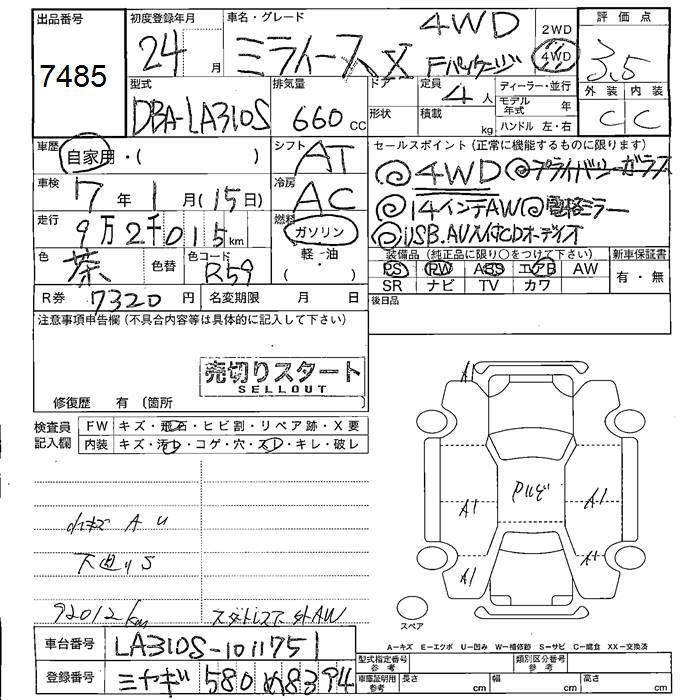 出品番号
7485
初度登録年月
24 月
車名・グレード
ミライース X 4WD
Fパッケージ
2WD
4WD
評価点
3.5
外装 内装
C C
型式
DBA-LA310S
排気量
660 CC
ドア
形状
定員
4 人
積載
kg
ディーラー・並行
モデル年式 年
ハンドル 左・右
車歴
自家用・( )
シフト
AT
車検
7 年 1 月(15日)
冷房
AC
走行
9万2千015km
燃料
ガソリン
軽・油
( )
色
茶
色替
色コード
R59
R券 7320円
名変期限 月 日
セールスポイント(正常に機能するものに限ります)
◎4WD ◎プライバシーガラス
◎14インチAW◎電格ミラー
◎USB.AUX付CDオーディオ
装備品(純正品に限り○をつけて下さい)
新車保証書
PS PW ABS エアB AW
有・無
SR ナビ TV カワ
後日品
注意事項申告欄(不具合内容等は具体的に記入して下さい)
売切りスタート
SELLOUT
修復歴 有(箇所
検査員
記入欄
FW キズ・飛石・ヒビ割・リペア跡・X要
内装 キズ・汚れ・コゲ・穴・スレ・キレ・破レ
小キズ A U
下廻りS
92012km
スタットレス外AW
A1
Pルゼ
A1
A1
A1
A1
スペア
A-キズ E-エクボ U-凹み W-補修跡 S-サビ C-腐食 XX-交換済
車台番号
LA310S-1011751
登録番号
ミヤギ 580 め8394
型式指定番号
参考
類別区分番号
参考
車庫証明用
参考
長さ cm 幅 cm 高さ cm